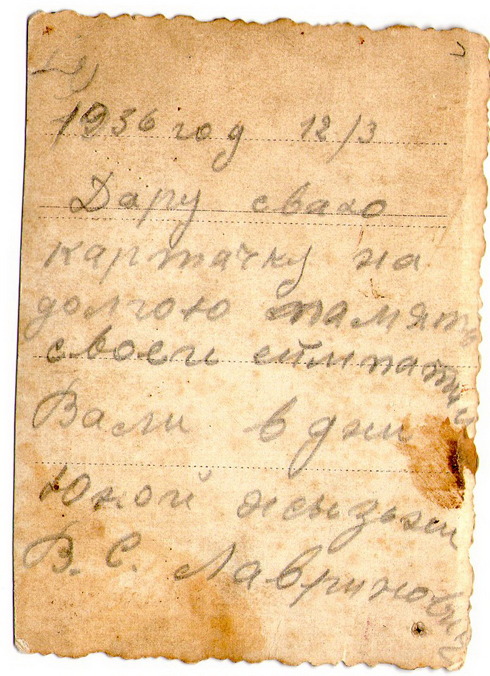 1936 год 12/3
Дару сваю
картачку на
долгою память
своеги симпатии
Вали в дни
Юной жызьни
В. С. Лавринович